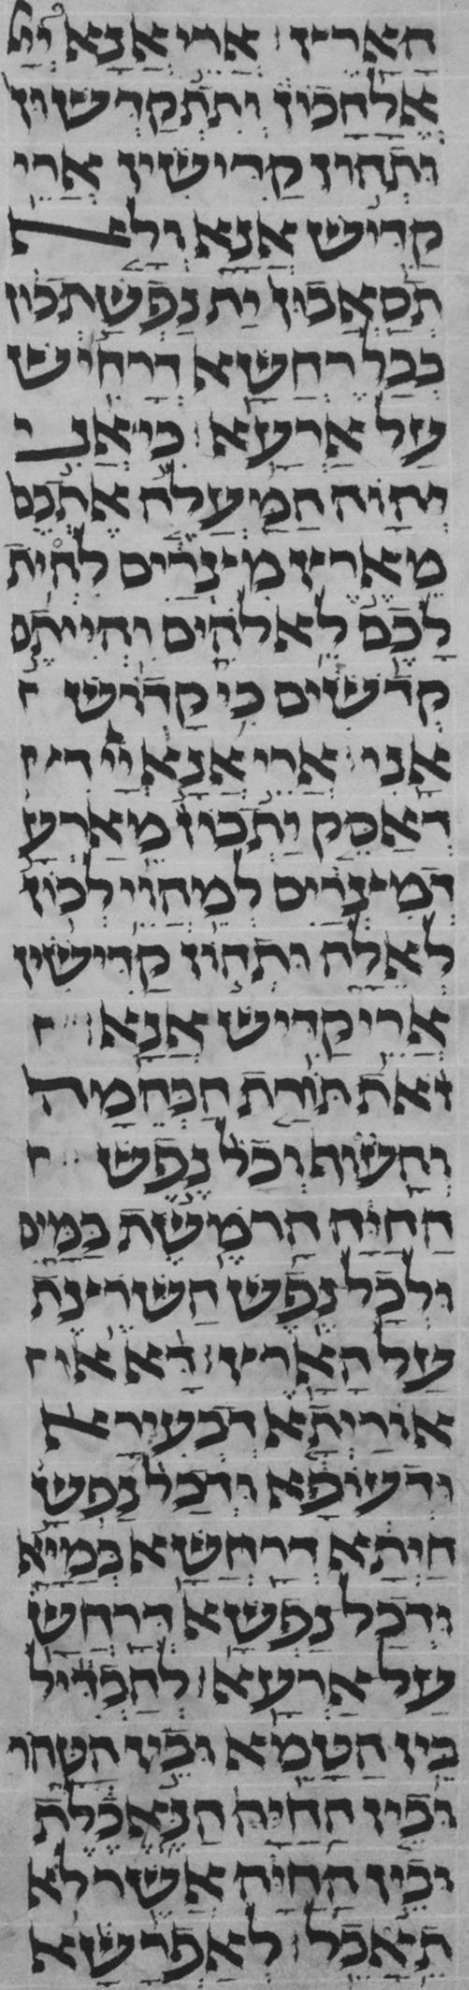 הארץ׃ ארי אנא ייי
אלהכון ותתקדשון
ותהון קדישין ארי
קדיש אנא ולא
תסאבון ית נפשתכון
בכל רחשא דרחיש
על ארעא׃ כי אני
יהוה המעלה אתכם
מארץ מצרים להית
לכם לאלהים והייתם
קדשים כי קדוש
אני׃ ארי אנא ייי
דאסק יתכון מארע
דמצרים למהוי לכון
לאלה ותהון קדישין
ארי קדיש אנא׃
זאת תורת הבהמה
והעוף וכל נפש
החיה הרמשת במים
ולכל נפש השרצת
על הארץ׃ דא
אוריתא דבעירא
ודעופא ודכל נפש
חיתא דרחשא במיא
ודכל נפשא דרחש
על ארעא׃ להבדיל
בין הטמא ובין הטהר
ובין החיה הנאכלת
ובין החיה אשר לא
תאכל׃ לאפרשא